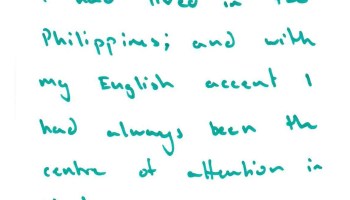 I had lived in the
Philippines; and with
my English accent I
had always been the
centre of attention in